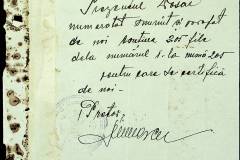 Prezentul Dosar
numerotat snuruit și parafat
de noi contine 205 file
dela numărul 1. la număr 205
pentru care se certifică
de noi -
Pretor